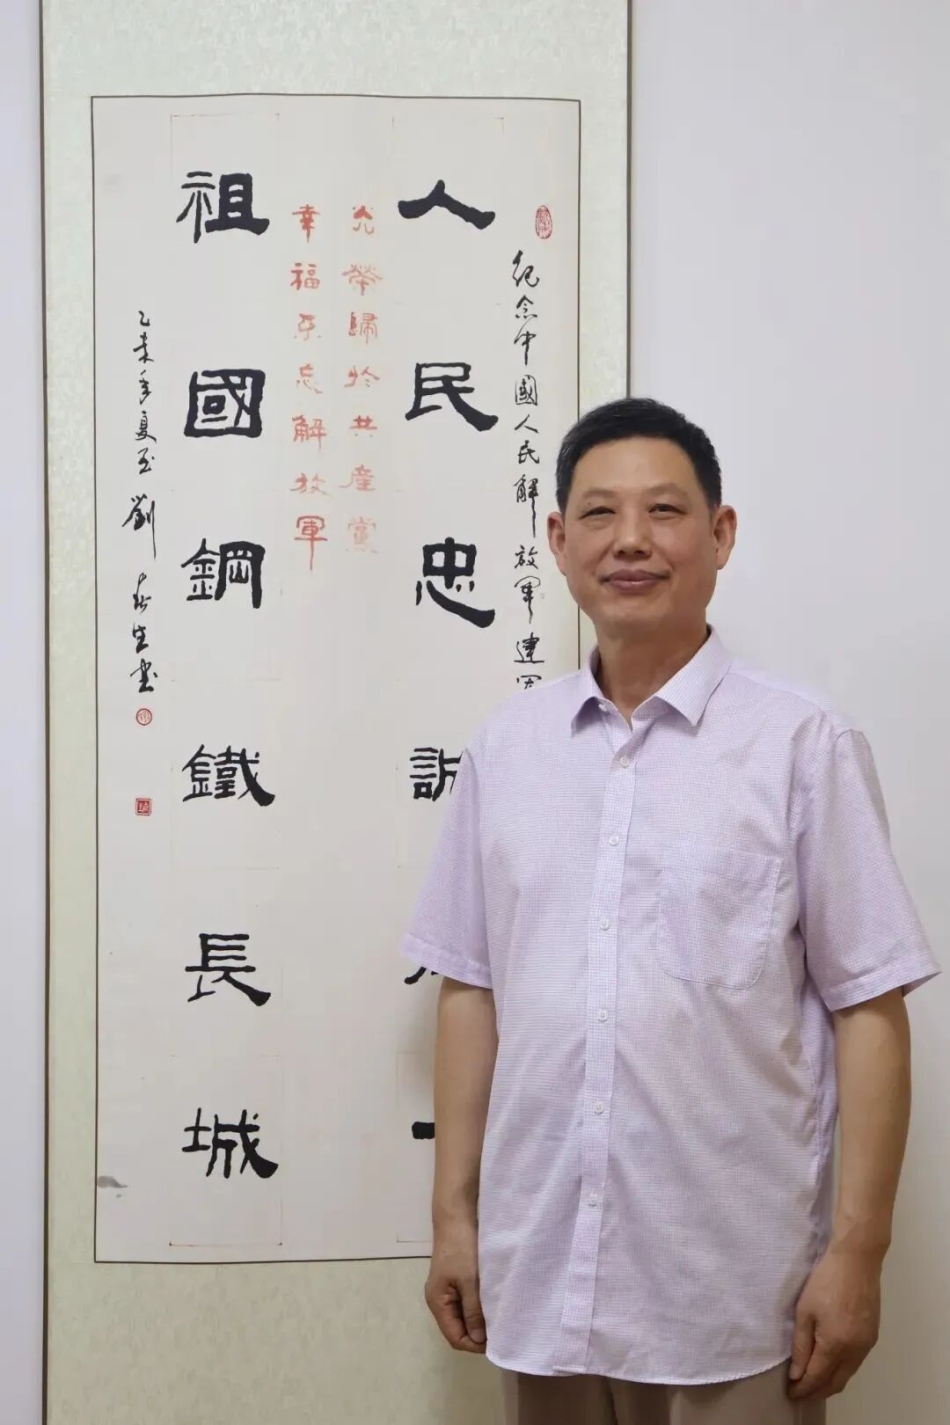 紀念中國人民解放軍建軍
人民忠誠
光榮歸於共產黨
幸福不忘解放軍
祖國鋼鐵長城
乙未年夏至劉春生書